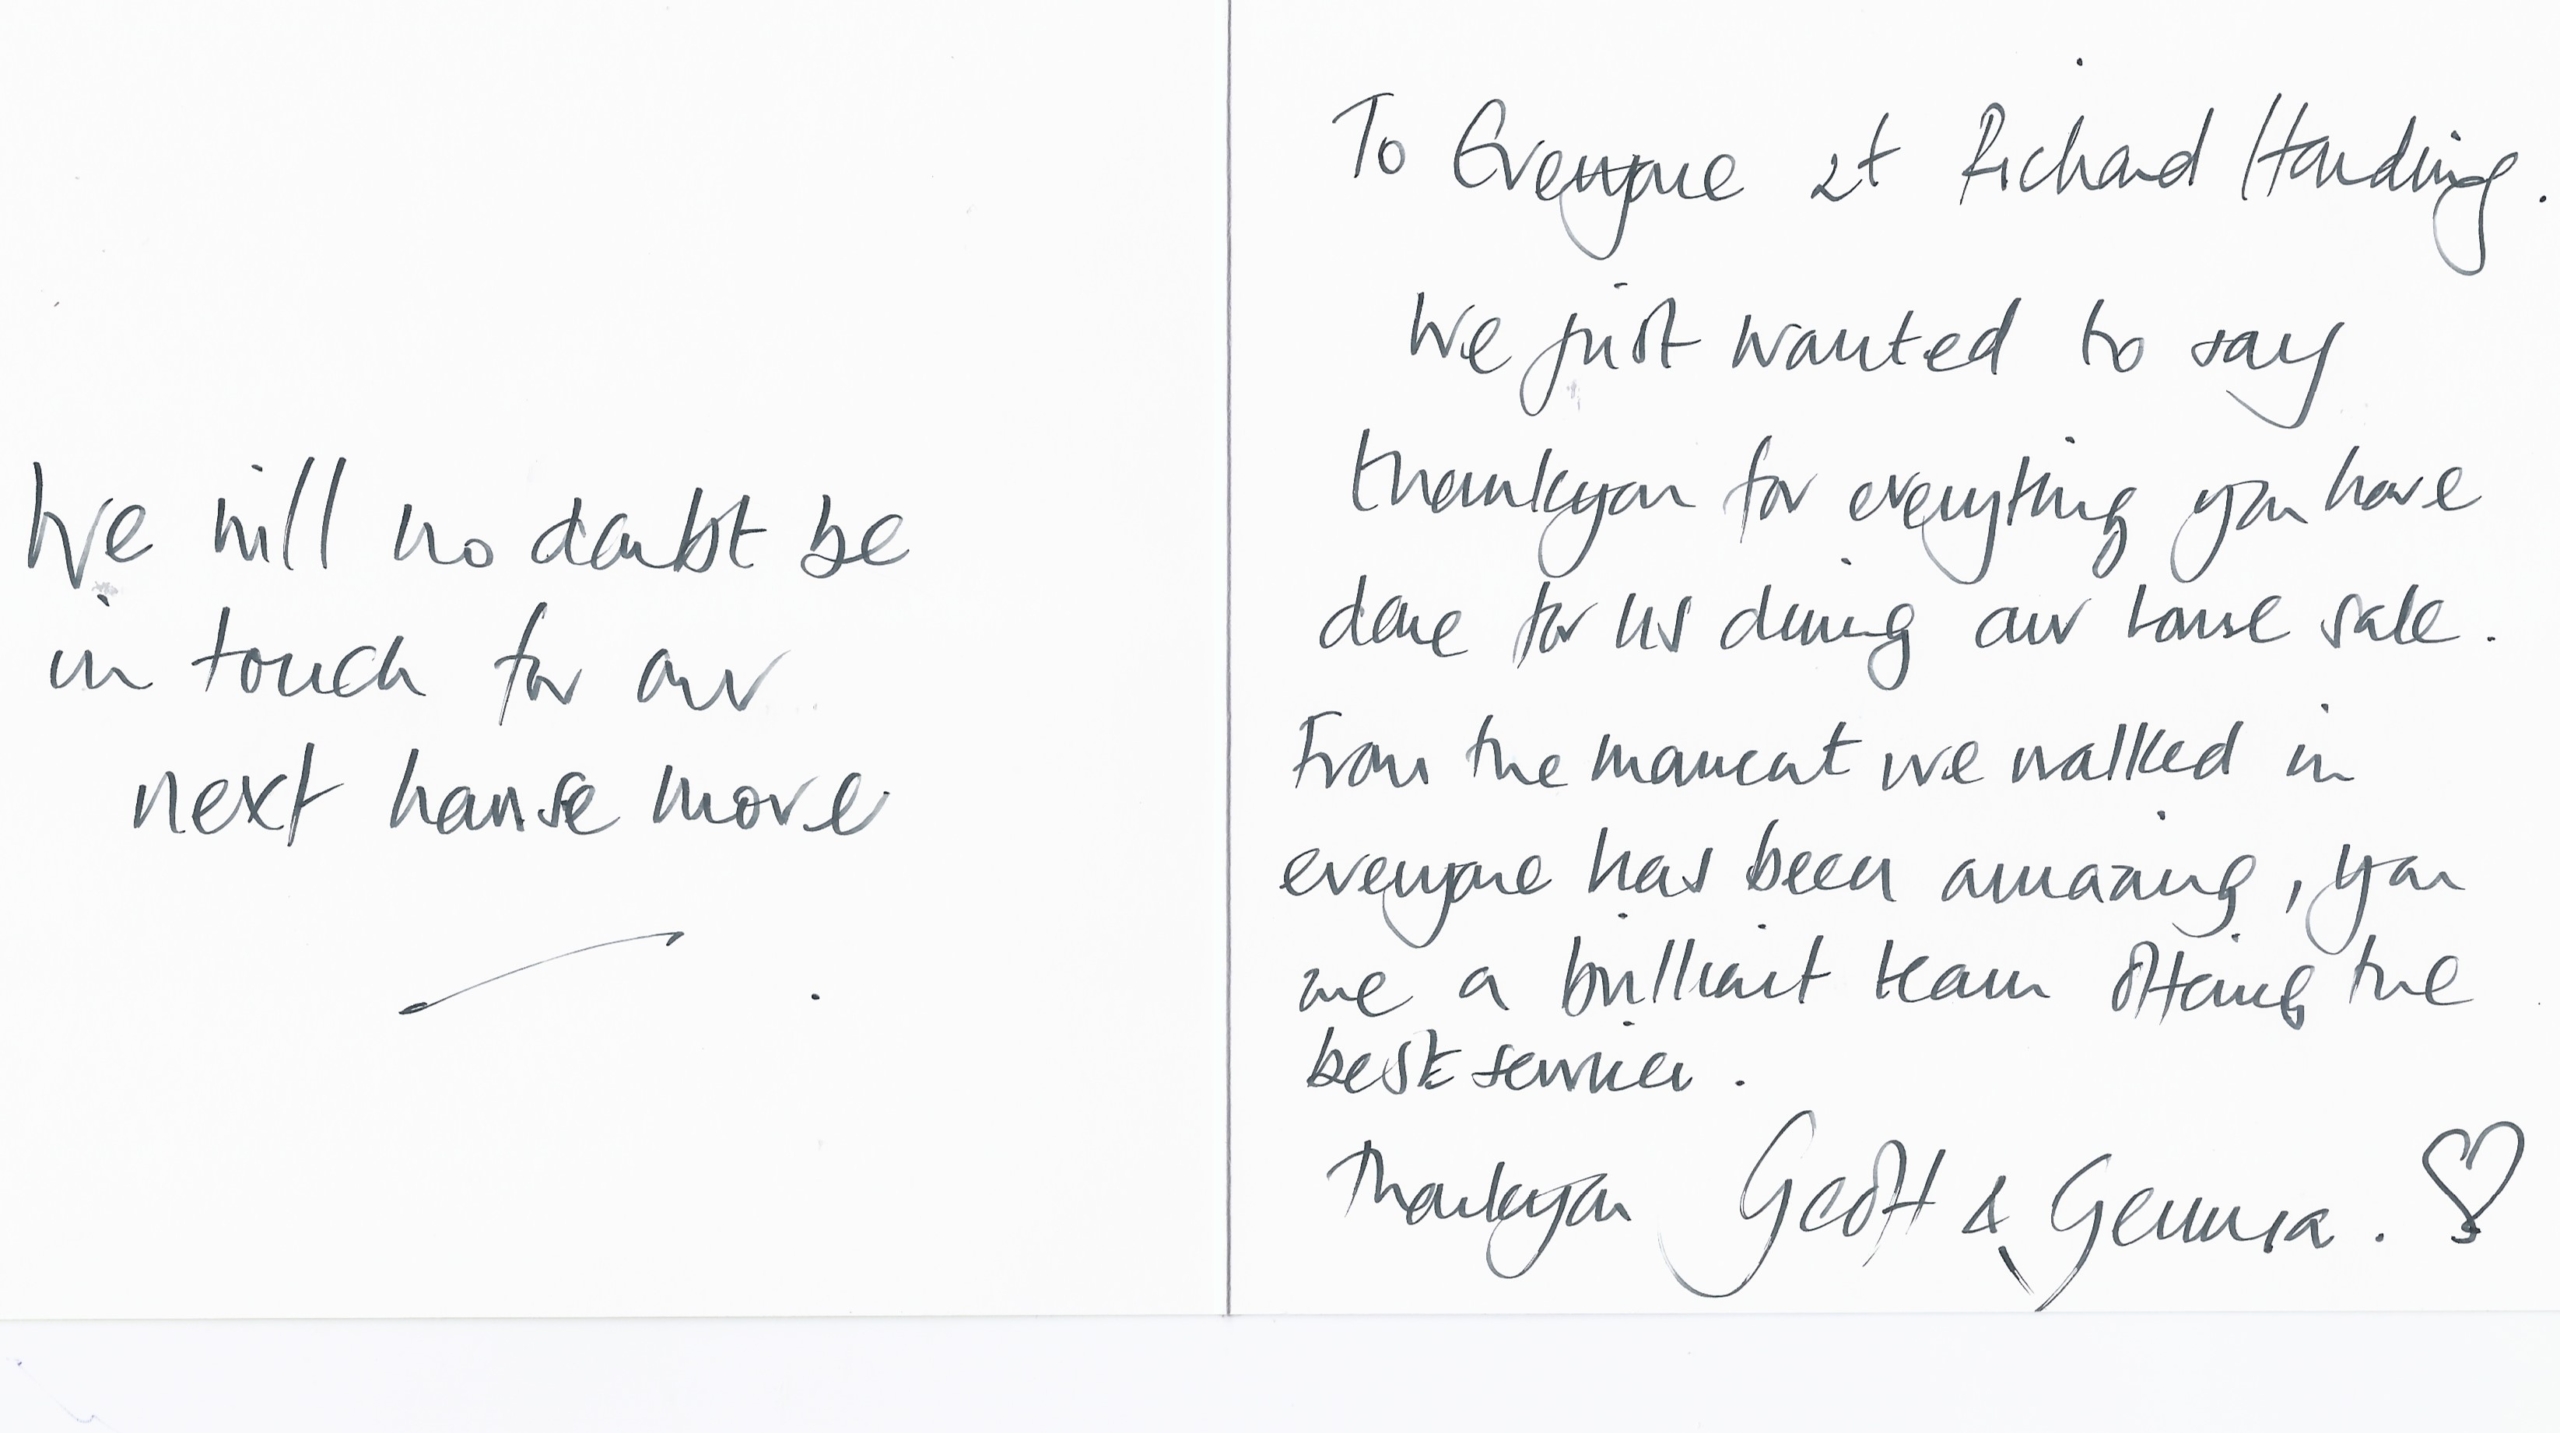 To Everyone at Richard Harding.
We just wanted to say
thankyou for everything you have
done for us during our house sale.
From the moment we walked in
everyone has been amazing, you
are a brilliant team offering the
best service.
Thankyou Geoff & Gemma. ♡
We will no doubt be
in touch for our
next house move